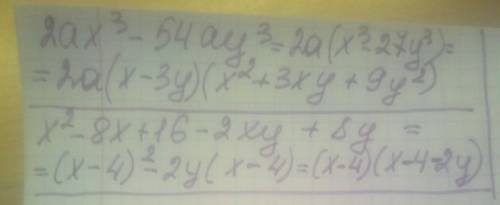 2ax³ - 54ay³ = 2a(x³-27y³) =
= 2a(x-3y)(x²+3xy+9y²)
x²-8x+16-2xy + 8y =
= (x-4)²-2y(x-4)=(x-4)(x-4-2y)